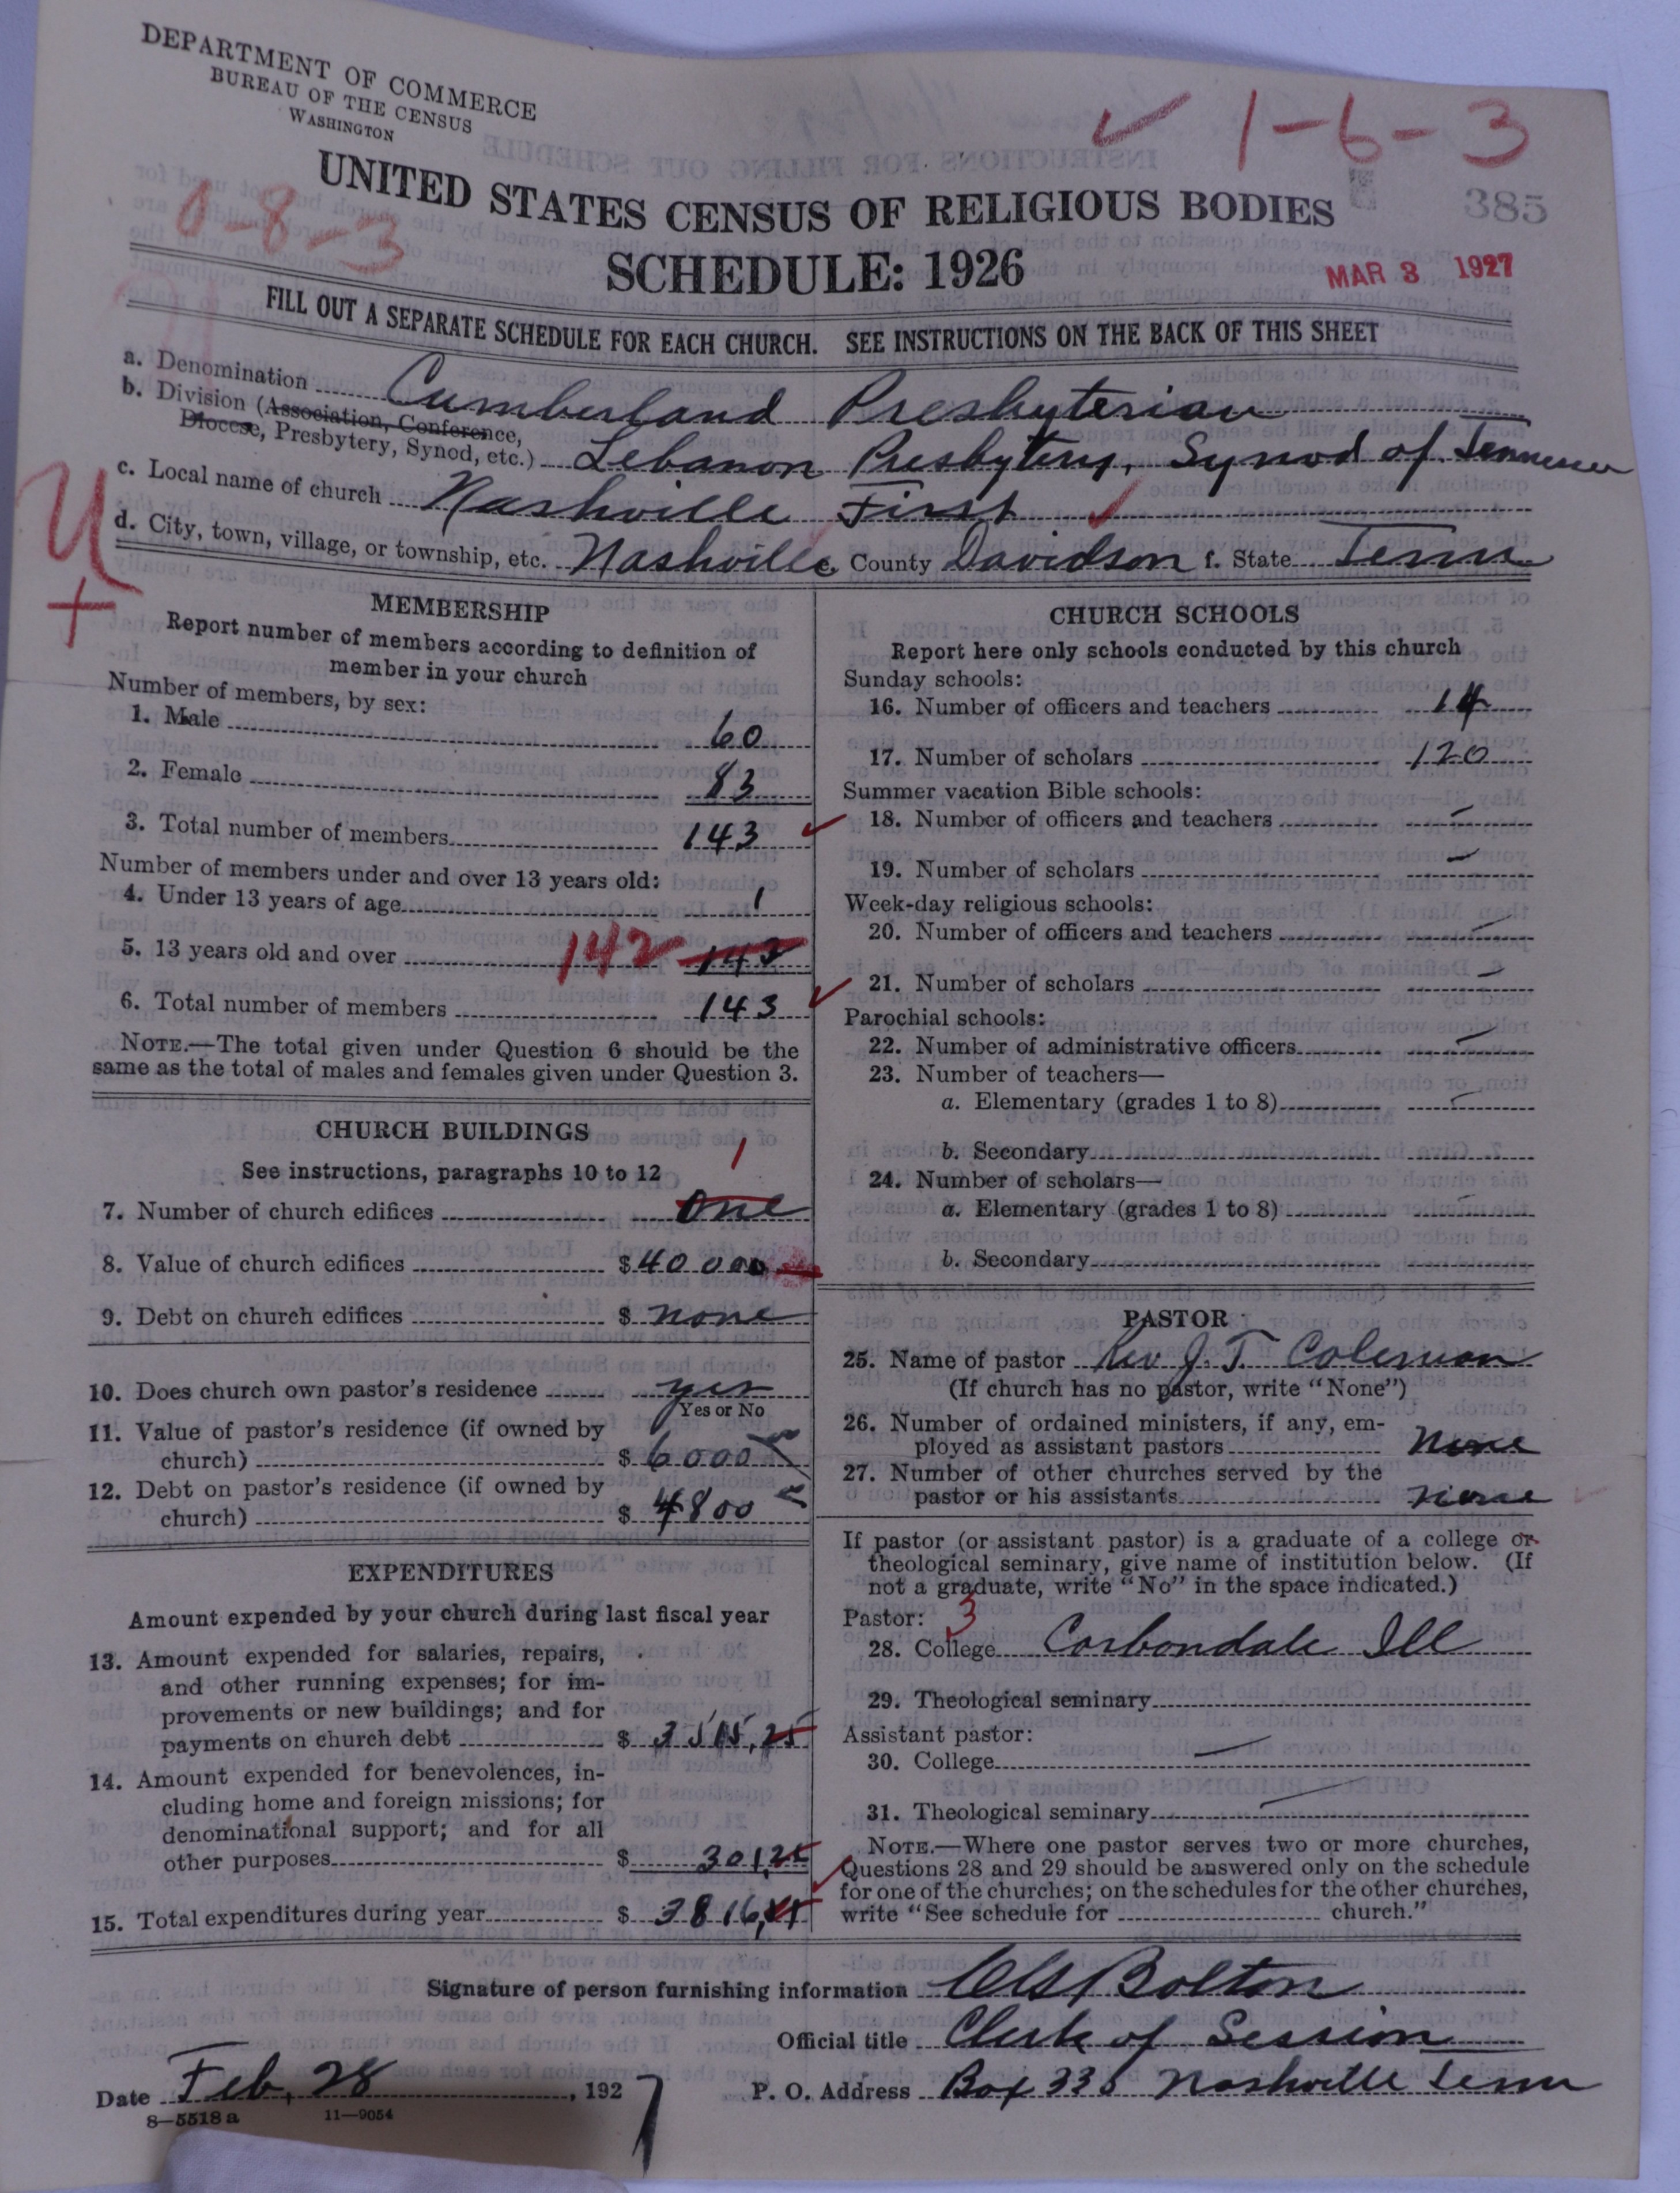 DEPARTMENT OF COMMERCE
BUREAU OF THE CENSUS
WASHINGTON
1-6-3
UNITED STATES CENSUS OF RELIGIOUS BODIES
385
0-8-3
SCHEDULE: 1926
MAR 3 1927
FILL OUT A SEPARATE SCHEDULE FOR EACH CHURCH. SEE INSTRUCTIONS ON THE BACK OF THIS SHEET
a. Denomination Cumberland Presbyterian
b. Division (Association, Conference,
Diocese, Presbytery, Synod, etc.) Lebanon Presbytery, Synod of Tennessee
c. Local name of church Nashville First
U
d. City, town, village, or township, etc. Nashville e. County Davidson f. State Tenn
MEMBERSHIP
Report number of members according to definition of
member in your church
Number of members, by sex:
1. Male 60
2. Female 83
3. Total number of members 143
Number of members under and over 13 years old:
4. Under 13 years of age 1
5. 13 years old and over 142
6. Total number of members 143
NOTE.—The total given under Question 6 should be the
same as the total of males and females given under Question 3.
CHURCH BUILDINGS
See instructions, paragraphs 10 to 12
1
7. Number of church edifices One
8. Value of church edifices $ 40 000
9. Debt on church edifices $ none
10. Does church own pastor's residence yes
Yes or No
11. Value of pastor's residence (if owned by
church) $ 6000
12. Debt on pastor's residence (if owned by
church) $ 4800
EXPENDITURES
Amount expended by your church during last fiscal year
13. Amount expended for salaries, repairs,
and other running expenses; for im-
provements or new buildings; and for
payments on church debt $ 3515,25
14. Amount expended for benevolences, in-
cluding home and foreign missions; for
denominational support; and for all
other purposes $ 301,25
15. Total expenditures during year $ 3816,
CHURCH SCHOOLS
Report here only schools conducted by this church
Sunday schools:
16. Number of officers and teachers 14
17. Number of scholars 120
Summer vacation Bible schools:
18. Number of officers and teachers —
19. Number of scholars —
Week-day religious schools:
20. Number of officers and teachers —
21. Number of scholars —
Parochial schools:
22. Number of administrative officers —
23. Number of teachers—
a. Elementary (grades 1 to 8) —
b. Secondary
24. Number of scholars—
a. Elementary (grades 1 to 8) —
b. Secondary
PASTOR
25. Name of pastor Rev J. T. Coleman
(If church has no pastor, write "None")
26. Number of ordained ministers, if any, em-
ployed as assistant pastors None
27. Number of other churches served by the
pastor or his assistants None
If pastor (or assistant pastor) is a graduate of a college or
theological seminary, give name of institution below. (If
not a graduate, write "No" in the space indicated.)
Pastor: 3
28. College Carbondale Ill
29. Theological seminary
Assistant pastor:
30. College —
31. Theological seminary —
NOTE.—Where one pastor serves two or more churches,
Questions 28 and 29 should be answered only on the schedule
for one of the churches; on the schedules for the other churches,
write "See schedule for church."
Signature of person furnishing information Bolton
Official title Clerk of Session
Date Feb, 28, 1927 P. O. Address Box 336 Nashville Tenn
8—5518 a 11—9054